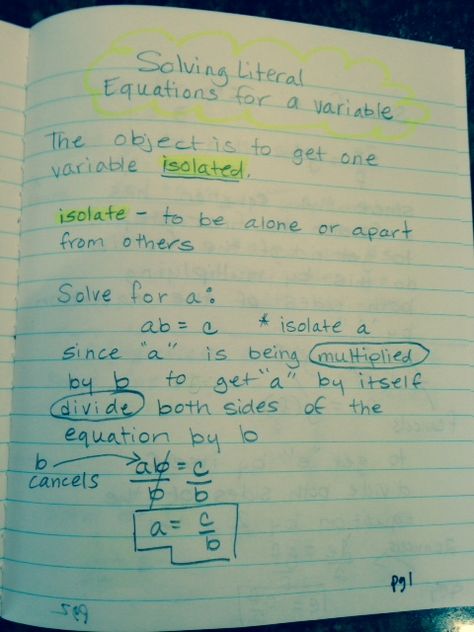 Solving Literal
Equations for a variable
The object is to get one
variable isolated.
isolate - to be alone or apart
from others
Solve for a:
ab = c * isolate a
since "a" is being multiplied
by b to get "a" by itself
divide both sides of the
equation by b
b cancels
ab = c
b b
a = c
b
pg1
pg2